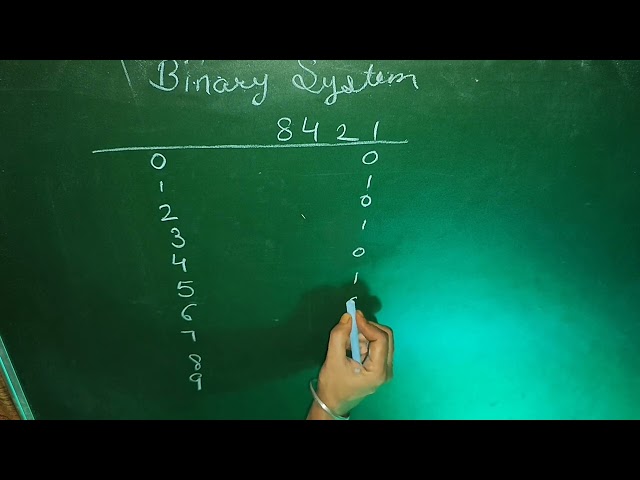 Binary System
8 4 2 1
0 0
1 1
2 0
3 1
4 0
5 1
6
7
8
9